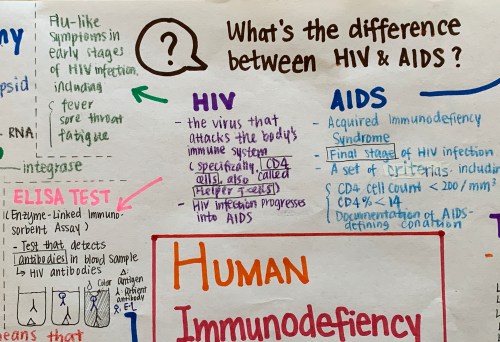 Flu-like
symptoms in
early stages
of HIV infection,
including
fever
sore throat
fatigue
What's the difference
between HIV & AIDS?
?
psid
RNA
integrase
HIV
- the virus that
attacks the body's
immune system
(specifically, CD4
cells, also called
Helper T cells)
- HIV infection progresses
into AIDS
AIDS
- Acquired Immunodefiency
Syndrome
- Final stage of HIV infection
- A set of criterias includin
CD4 cell count < 200/mm³
CD4% < 14
Documentation of AIDS-
defining condition
ELISA TEST
(Enzyme-Linked Immuno-
sorbent Assay)
- Test that detects
antibodies in blood sample
↳ HIV antibodies
Color
Δ:
antigen
antibody
HUMAN
Immunodefiency
eans that